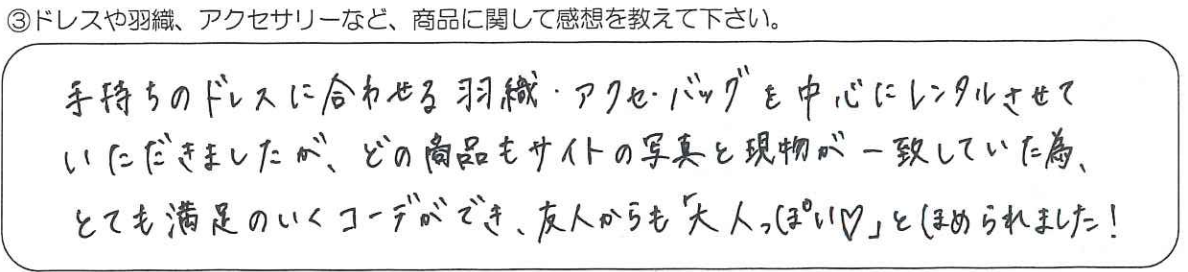 ③ドレスや羽織、アクセサリーなど、商品に関して感想を教えて下さい。
手持ちのドレスに合わせる羽織・アクセ・バッグを中心にレンタルさせて
いただきましたが、どの商品もサイトの写真と現物が一致していた為、
とても満足のいくコーデができ、友人からも「大人っぽい♡」とほめられました!